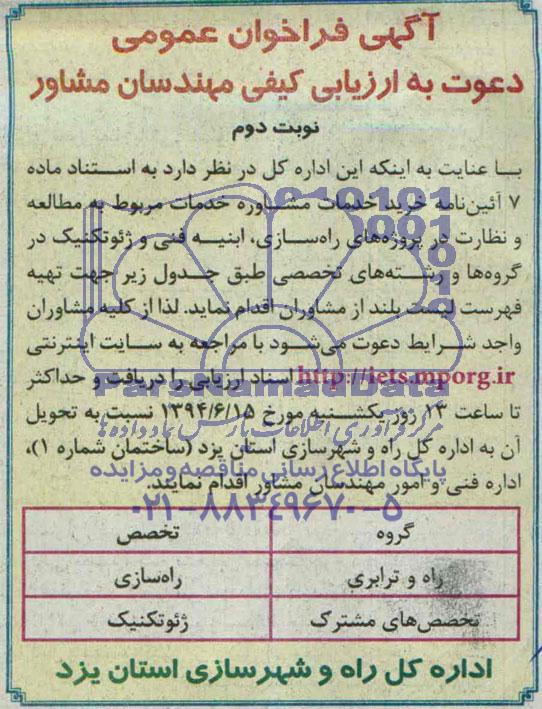 آگهی فراخوان عمومی
دعوت به ارزیابی کیفی مهندسان مشاور
نوبت دوم
با عنایت به اینکه این اداره کل در نظر دارد به استناد ماده
۷ آئین‌نامه خرید خدمات مشاوره خدمات مربوط به مطالعه
و نظارت در پروژه‌های راه‌سازی، ابنیه فنی و ژئوتکنیک در
گروه‌ها و رشته‌های تخصصی طبق جدول زیر جهت تهیه
فهرست لیست بلند از مشاوران اقدام نماید. لذا از کلیه مشاوران
واجد شرایط دعوت می‌شود با مراجعه به سایت اینترنتی
http://iets.mporg.ir اسناد ارزیابی را دریافت و حداکثر
ParsNamadData
تا ساعت ۱۳ روز یکشنبه مورخ ۱۳۹۴/۶/۱۵ نسبت به تحویل
مرکز فرآوری اطلاعات پارس نماد داده‌ها
آن به اداره کل راه و شهرسازی استان یزد (ساختمان شماره ۱)،
پایگاه اطلاع رسانی مناقصه و مزایده
اداره فنی و امور مهندسان مشاور اقدام نمایند.
۰۲۱-۸۸۳۴۹۶۷۰-۵
گروه تخصص
راه و ترابری راه‌سازی
تخصص‌های مشترک ژئوتکنیک
اداره کل راه و شهرسازی استان یزد